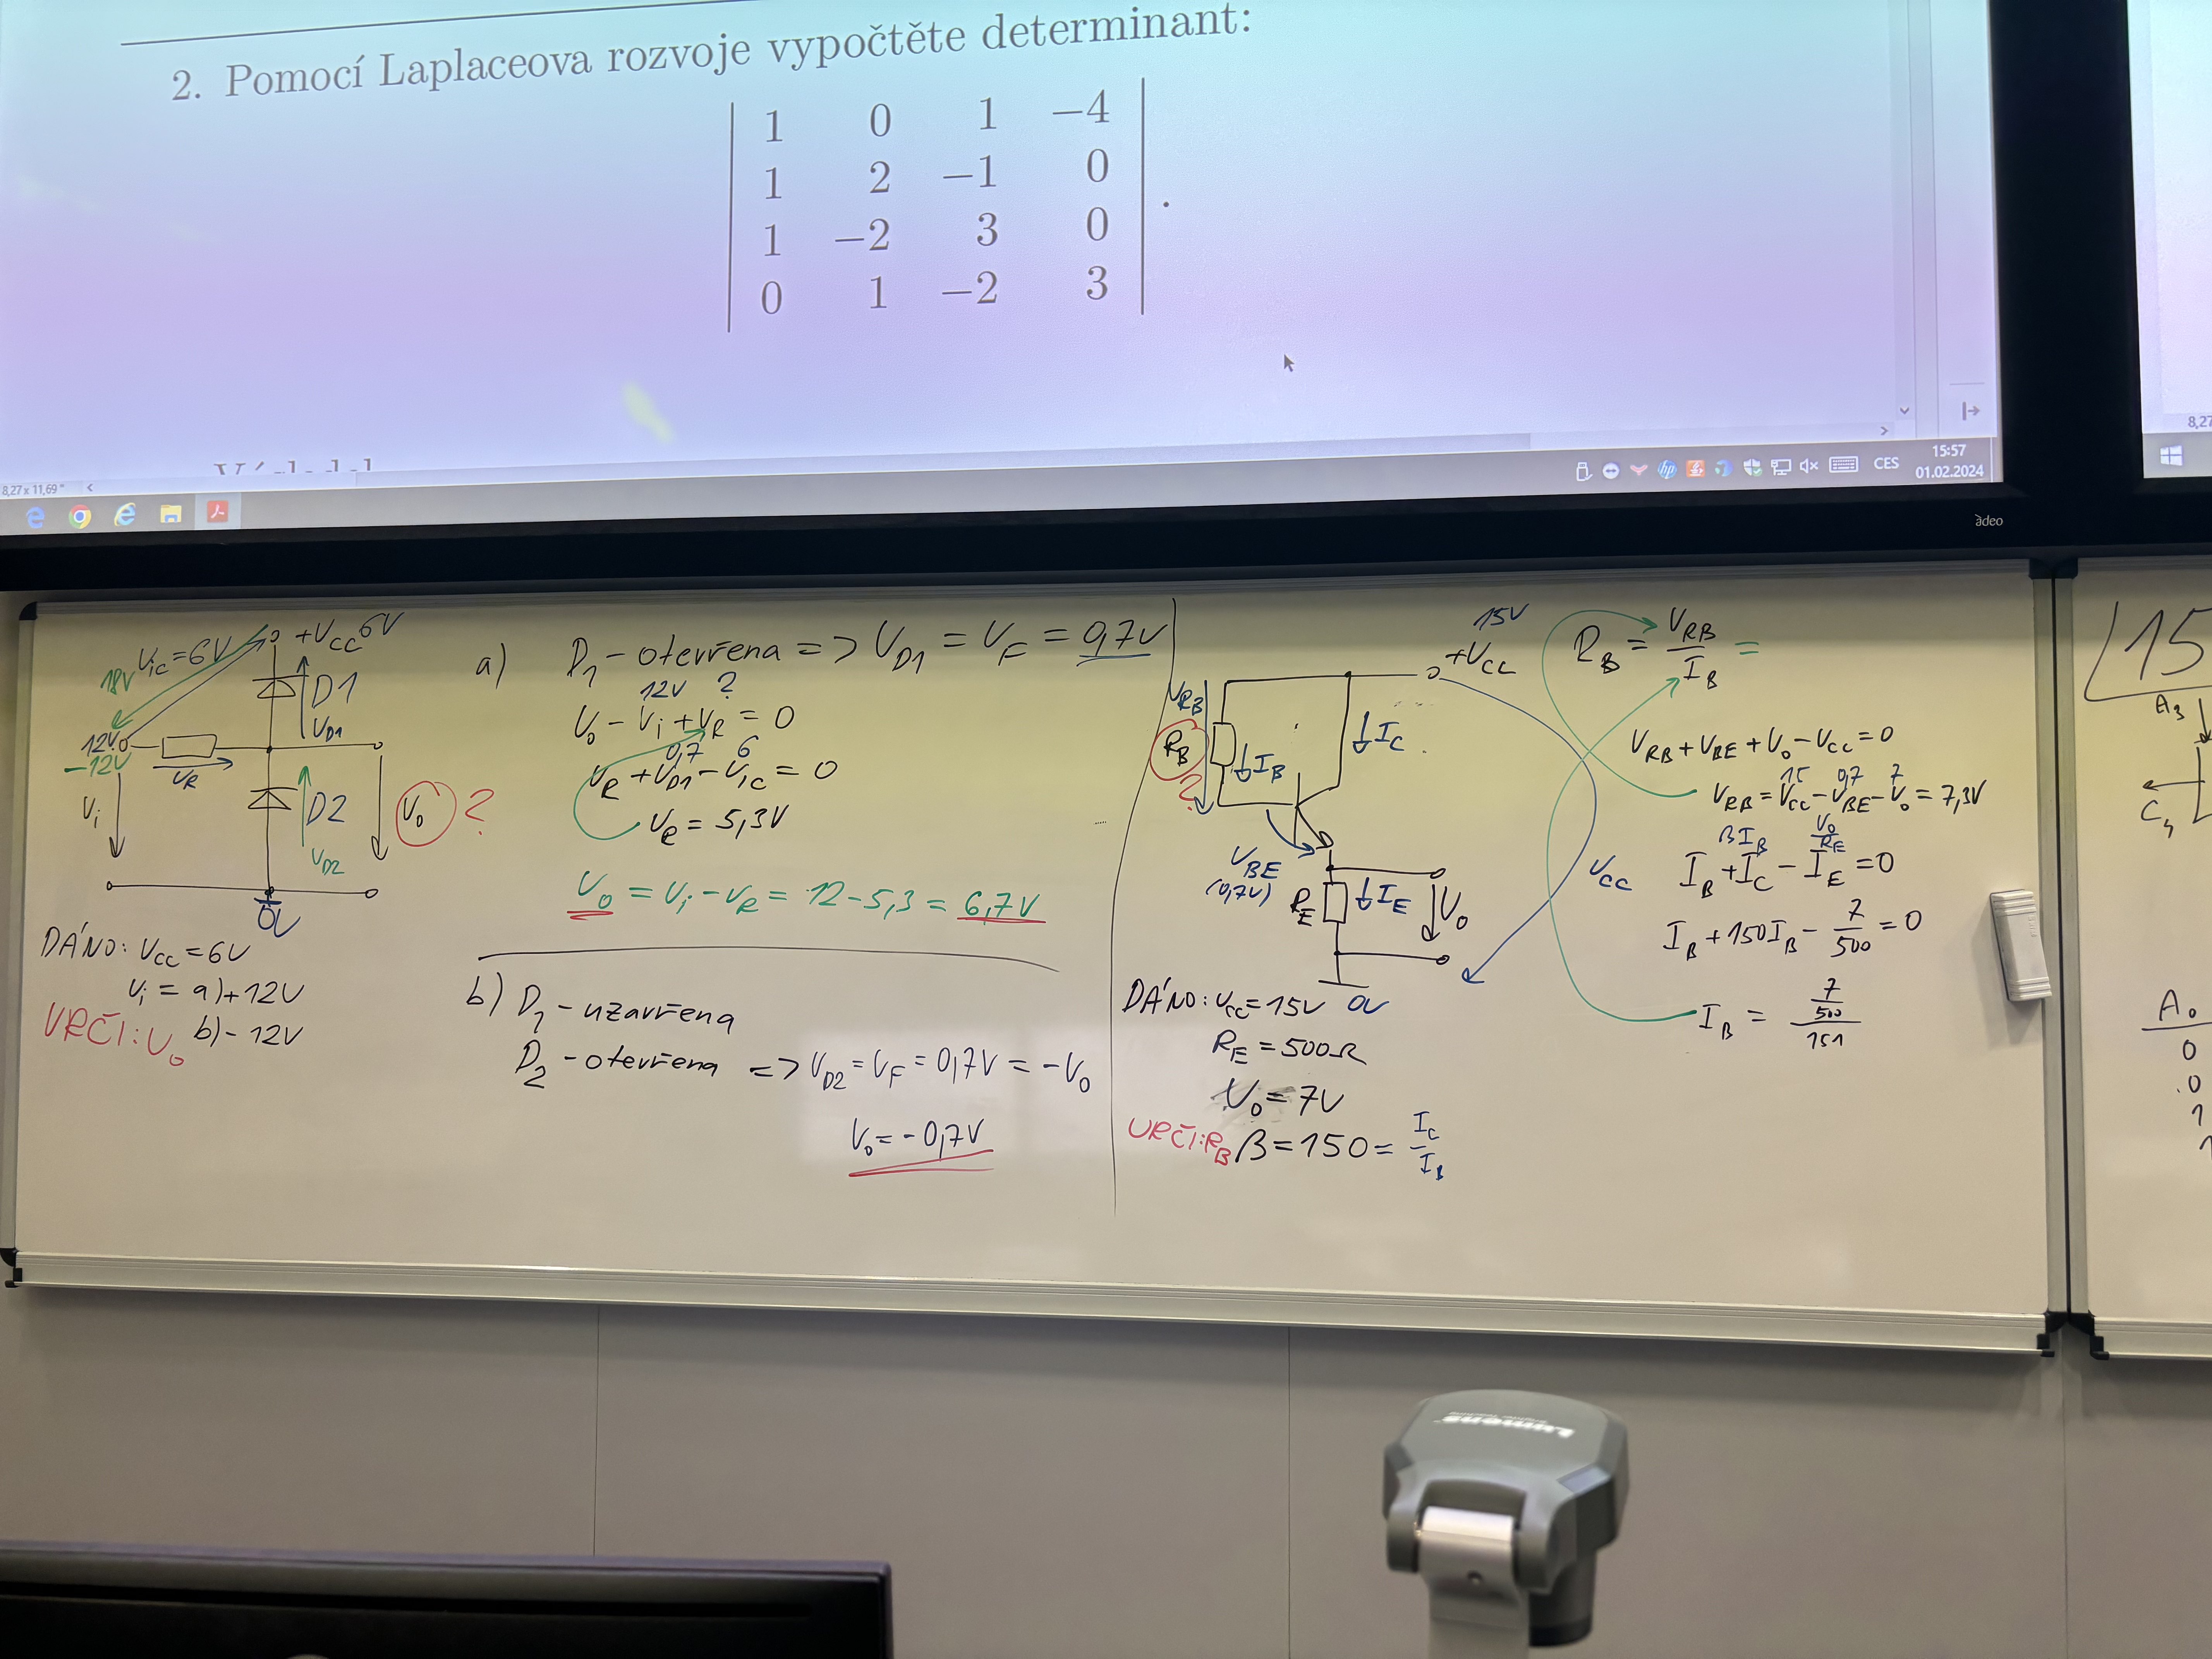 2. Pomocí Laplaceova rozvoje vypočtěte determinant:
1 0 1 −4
1 2 −1 0
1 −2 3 0
0 1 −2 3
.
8,27 x 11,69 "
CES
15:57
01.02.2024
8,27
adeo
+VCC 6V
VIC=6V
18V
D1
VD1
12V
-12V
VR
Vi
D2
VD2
Vo ?
0V
DÁNO: VCC=6V
Vi = a)+12V
b)-12V
URČI: Vo
a) D1 - otevřena => VD1 = VF = 0,7V
12V ?
Vo - Vi + VR = 0
0,7 6
VR + VD1 - VIC = 0
VR = 5,3V
Vo = Vi - VR = 12 - 5,3 = 6,7V
b) D1 - uzavřena
D2 - otevřena => VD2 = VF = 0,7V = -Vo
Vo = -0,7V
15V
+VCC
VRB
RB
?
IB
IC
VBE
(0,7V)
RE
IE
Vo
VCC
0V
DÁNO: VCC=15V
RE = 500Ω
Vo = 7V
URČI: RB
β = 150 = IC/IB
RB = VRB/IB =
VRB + VBE + Vo - VCC = 0
15 0,7 7
VRB = VCC - VBE - Vo = 7,3V
βIB Vo/RE
IB + IC - IE = 0
IB + 150IB - 7/500 = 0
IB = 7/500/151
15
A3
C4
A0
0
0
1
1
Lumens